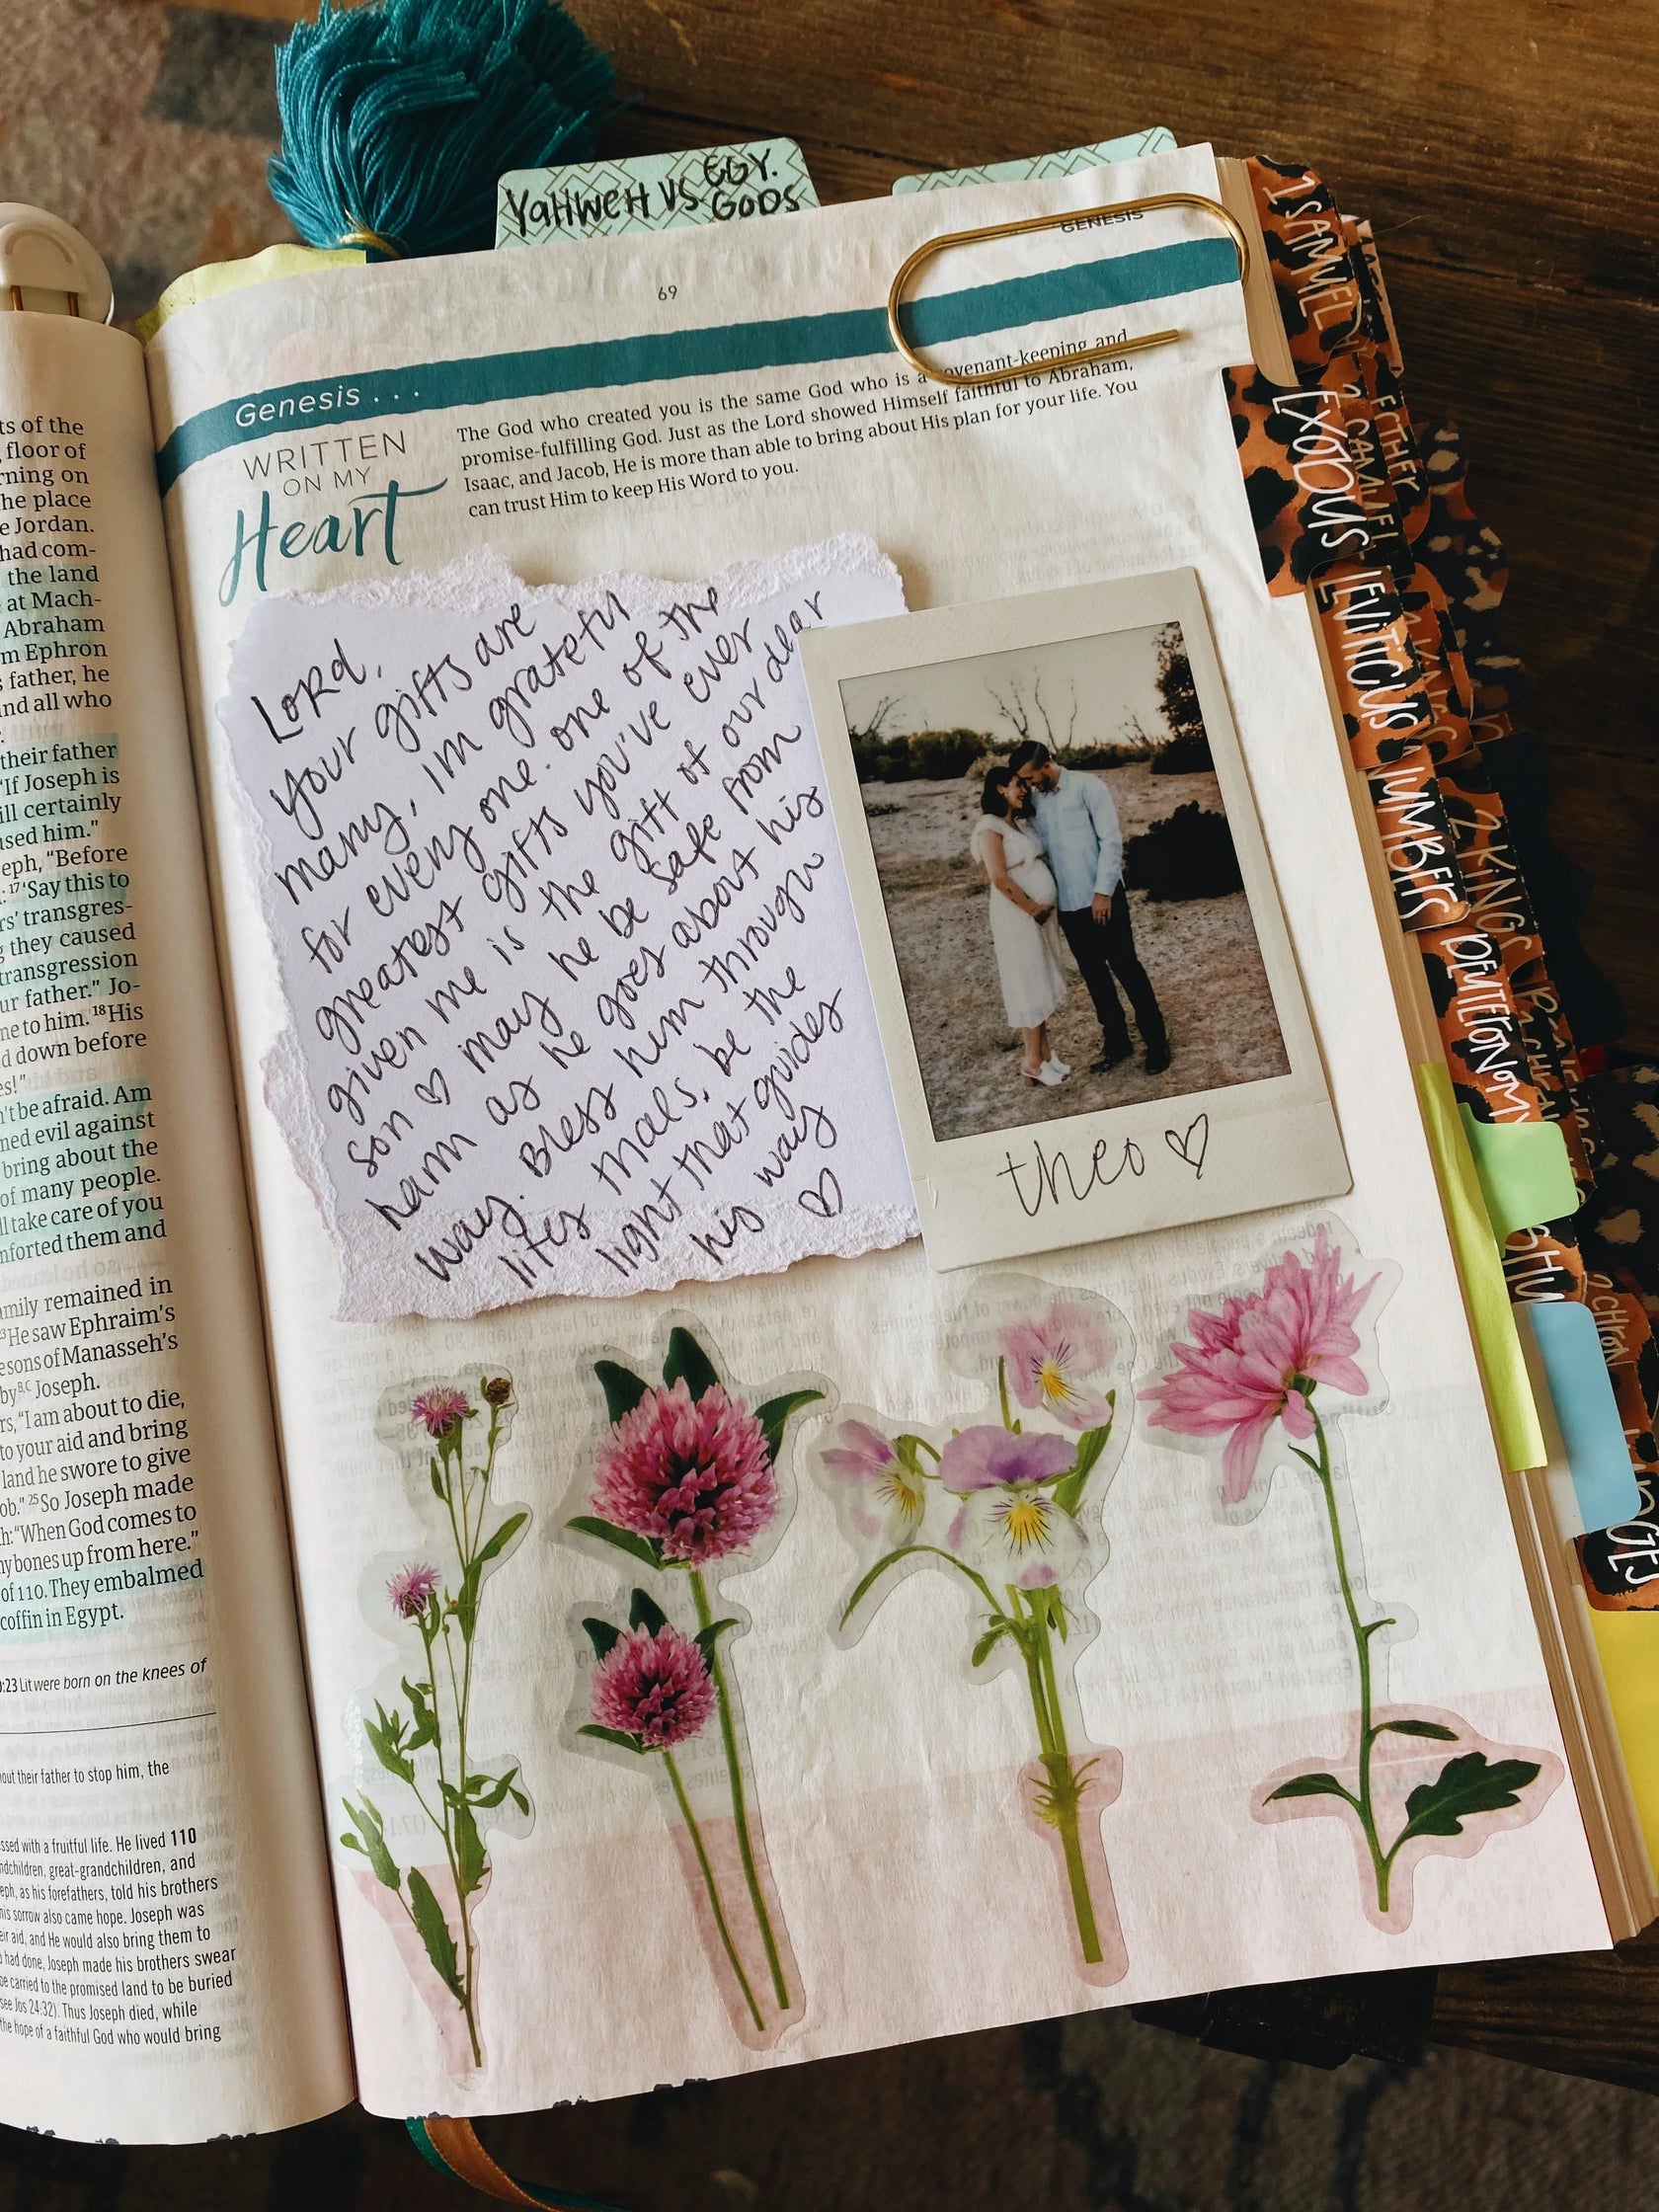 YaHWeH VS EGY. GODS
GENESIS
69
Genesis . . .
WRITTEN
ON MY
Heart
The God who created you is the same God who is a covenant-keeping and
promise-fulfilling God. Just as the Lord showed Himself faithful to Abraham,
Isaac, and Jacob, He is more than able to bring about His plan for your life. You
can trust Him to keep His Word to you.
Lord,
Your gifts are
many, im grateful
for every one. one of the
greatest gifts you've ever
given me is the gift of our dear
son ♡ may he be safe from
harm as he goes about his
way. Bless him through
lifes trials, be the
light that guides
his way
♡
theo ♡
1 SAMUEL
EXODUS
2 SAMUEL
ESTHER
LEVITICUS
NUMBERS
2 KINGS
DEUTERONOMY
2 CHRON
ts of the
floor of
rning on
he place
e Jordan.
had com-
the land
at Mach-
Abraham
m Ephron
father, he
nd all who
their father
"If Joseph is
ill certainly
used him."
eph, "Before
17 'Say this to
rs' transgres-
they caused
transgression
ur father." Jo-
ne to him. 18 His
d down before
es!"
't be afraid. Am
ned evil against
bring about the
of many people.
ll take care of you
mforted them and
amily remained in
23 He saw Ephraim's
e sons of Manasseh's
by B,C Joseph.
rs, "I am about to die,
to your aid and bring
land he swore to give
ob." 25 So Joseph made
h: "When God comes to
my bones up from here."
of 110. They embalmed
coffin in Egypt.
0:23 Lit were born on the knees of
out their father to stop him, the
ssed with a fruitful life. He lived 110
ndchildren, great-grandchildren, and
eph, as his forefathers, told his brothers
his sorrow also came hope. Joseph was
eir aid, and He would also bring them to
had done, Joseph made his brothers swear
be carried to the promised land to be buried
see Jos 24:32). Thus Joseph died, while
the hope of a faithful God who would bring